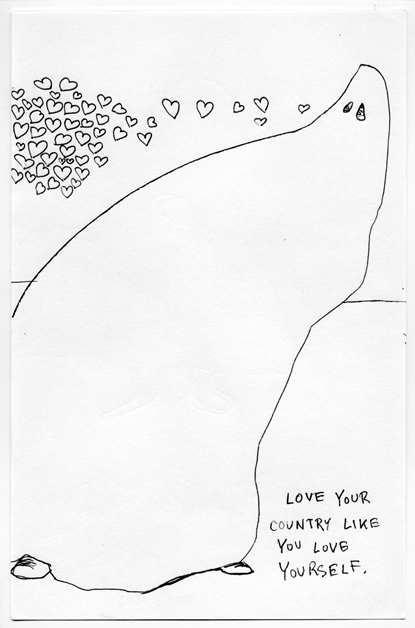 LOVE YOUR
COUNTRY LIKE
YOU LOVE
YOURSELF.